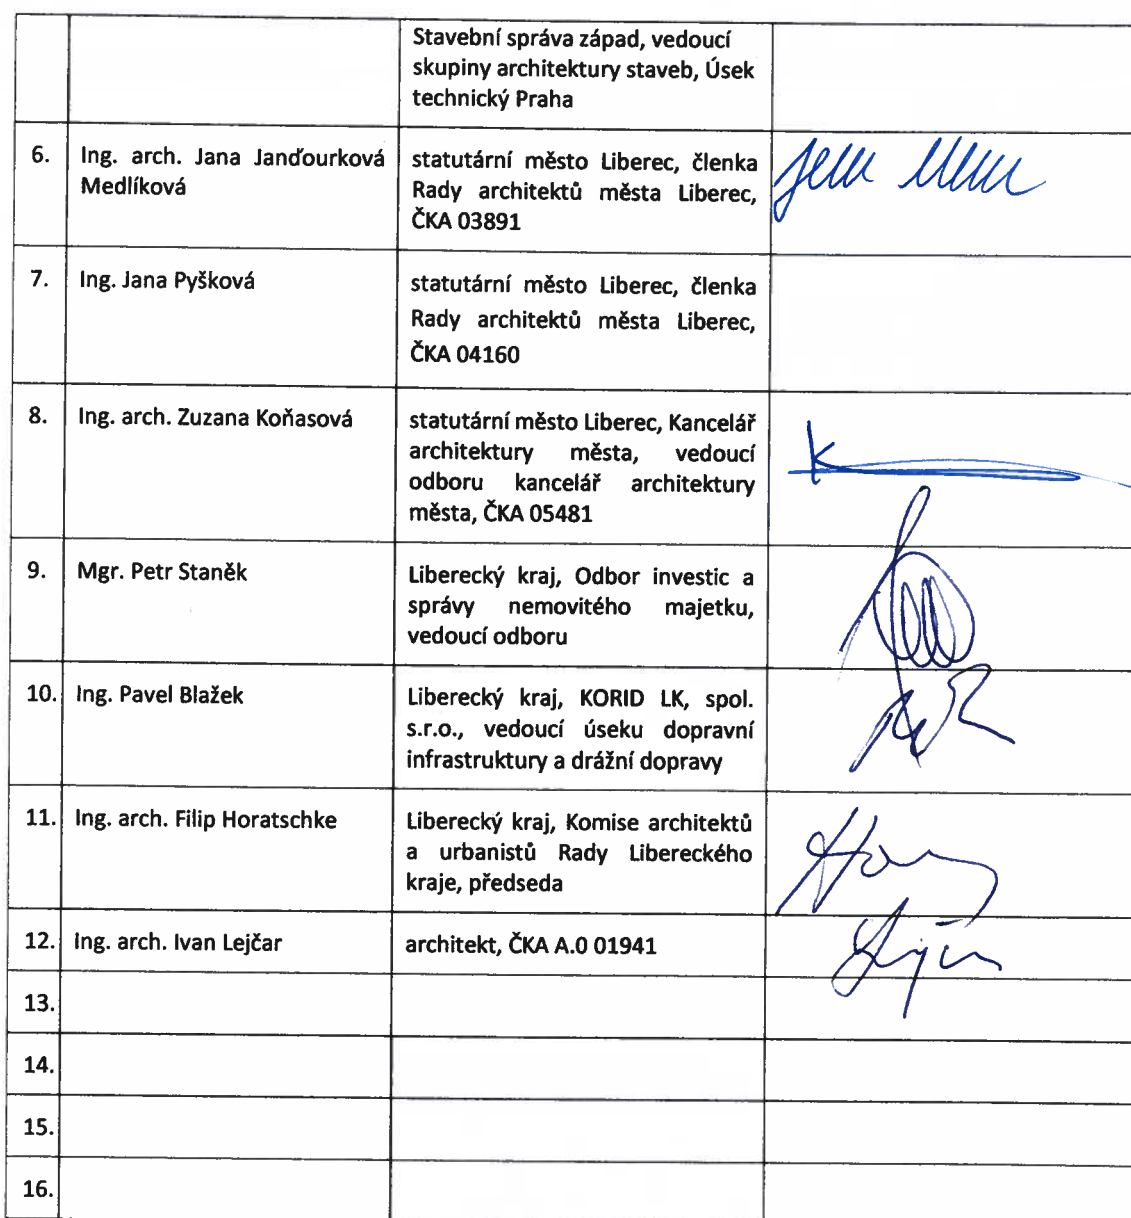 Stavební správa západ, vedoucí
skupiny architektury staveb, Úsek
technický Praha
6. Ing. arch. Jana Janďourková
Medlíková
statutární město Liberec, členka
Rady architektů města Liberec,
ČKA 03891
7. Ing. Jana Pyšková
statutární město Liberec, členka
Rady architektů města Liberec,
ČKA 04160
8. Ing. arch. Zuzana Koňasová
statutární město Liberec, Kancelář
architektury města, vedoucí
odboru kancelář architektury
města, ČKA 05481
9. Mgr. Petr Staněk
Liberecký kraj, Odbor investic a
správy nemovitého majetku,
vedoucí odboru
10. Ing. Pavel Blažek
Liberecký kraj, KORID LK, spol.
s.r.o., vedoucí úseku dopravní
infrastruktury a drážní dopravy
11. Ing. arch. Filip Horatschke
Liberecký kraj, Komise architektů
a urbanistů Rady Libereckého
kraje, předseda
12. Ing. arch. Ivan Lejčar
architekt, ČKA A.0 01941
13.
14.
15.
16.